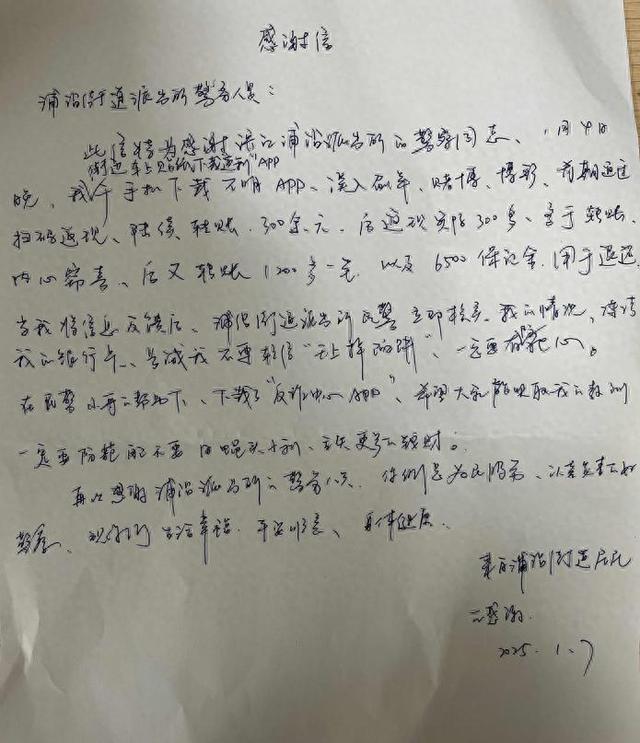 感谢信
浦沿街道派出所警务人员：
此信特为感谢滨江浦沿派出所的警察同志、1月4日
街边车上贴纸下载返利"APP
晚，我于手机下载不明APP、误入刷单、赌博、博彩、前期通过
扫码返现、陆续转账.300余元.后返现实际300多、多于转账、
内心窃喜、后又转账1200多一笔.以及6500保证金.用于退返.
当我将信息反馈后、浦沿街道派出所民警立即核实、我的情况、
我的银行卡、告诫我不要轻信"天上掉馅饼"、一定要有防范心。
在民警小哥的帮助下、下载了"反诈中心APP"、希望大家能吸取我的教训
一定要防范而不要因蝇头小利、丢失更多的钱财。
再次感谢浦沿派出所的警务人员.你们是为民服务、认真负责的好
警察、祝你们生活幸福.平安顺意、身体健康.
来自浦沿街道居民
的感谢.
2025.1.7